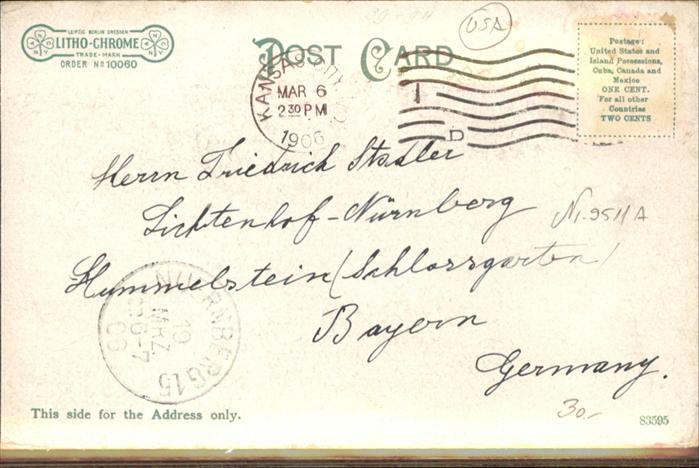 LEIPZIG BERLIN DRESDEN
LITHO-CHROME
TRADE-MARK
ORDER No 10060
POST CARD
USA
KANSAS CITY
MAR 6
2 30 PM
1906
D
Postage:
United States and
Island Possessions,
Cuba, Canada and
Mexico
ONE CENT.
For all other
Countries
TWO CENTS
Herrn Friedrich Stadler
Lichtenhof-Nürnberg
N. 9511 A
Hummelstein (Schlossgarten)
Bayern
Germany.
NUERNBERG 15
19
MRZ
6-7
06
30.-
This side for the Address only.
83595